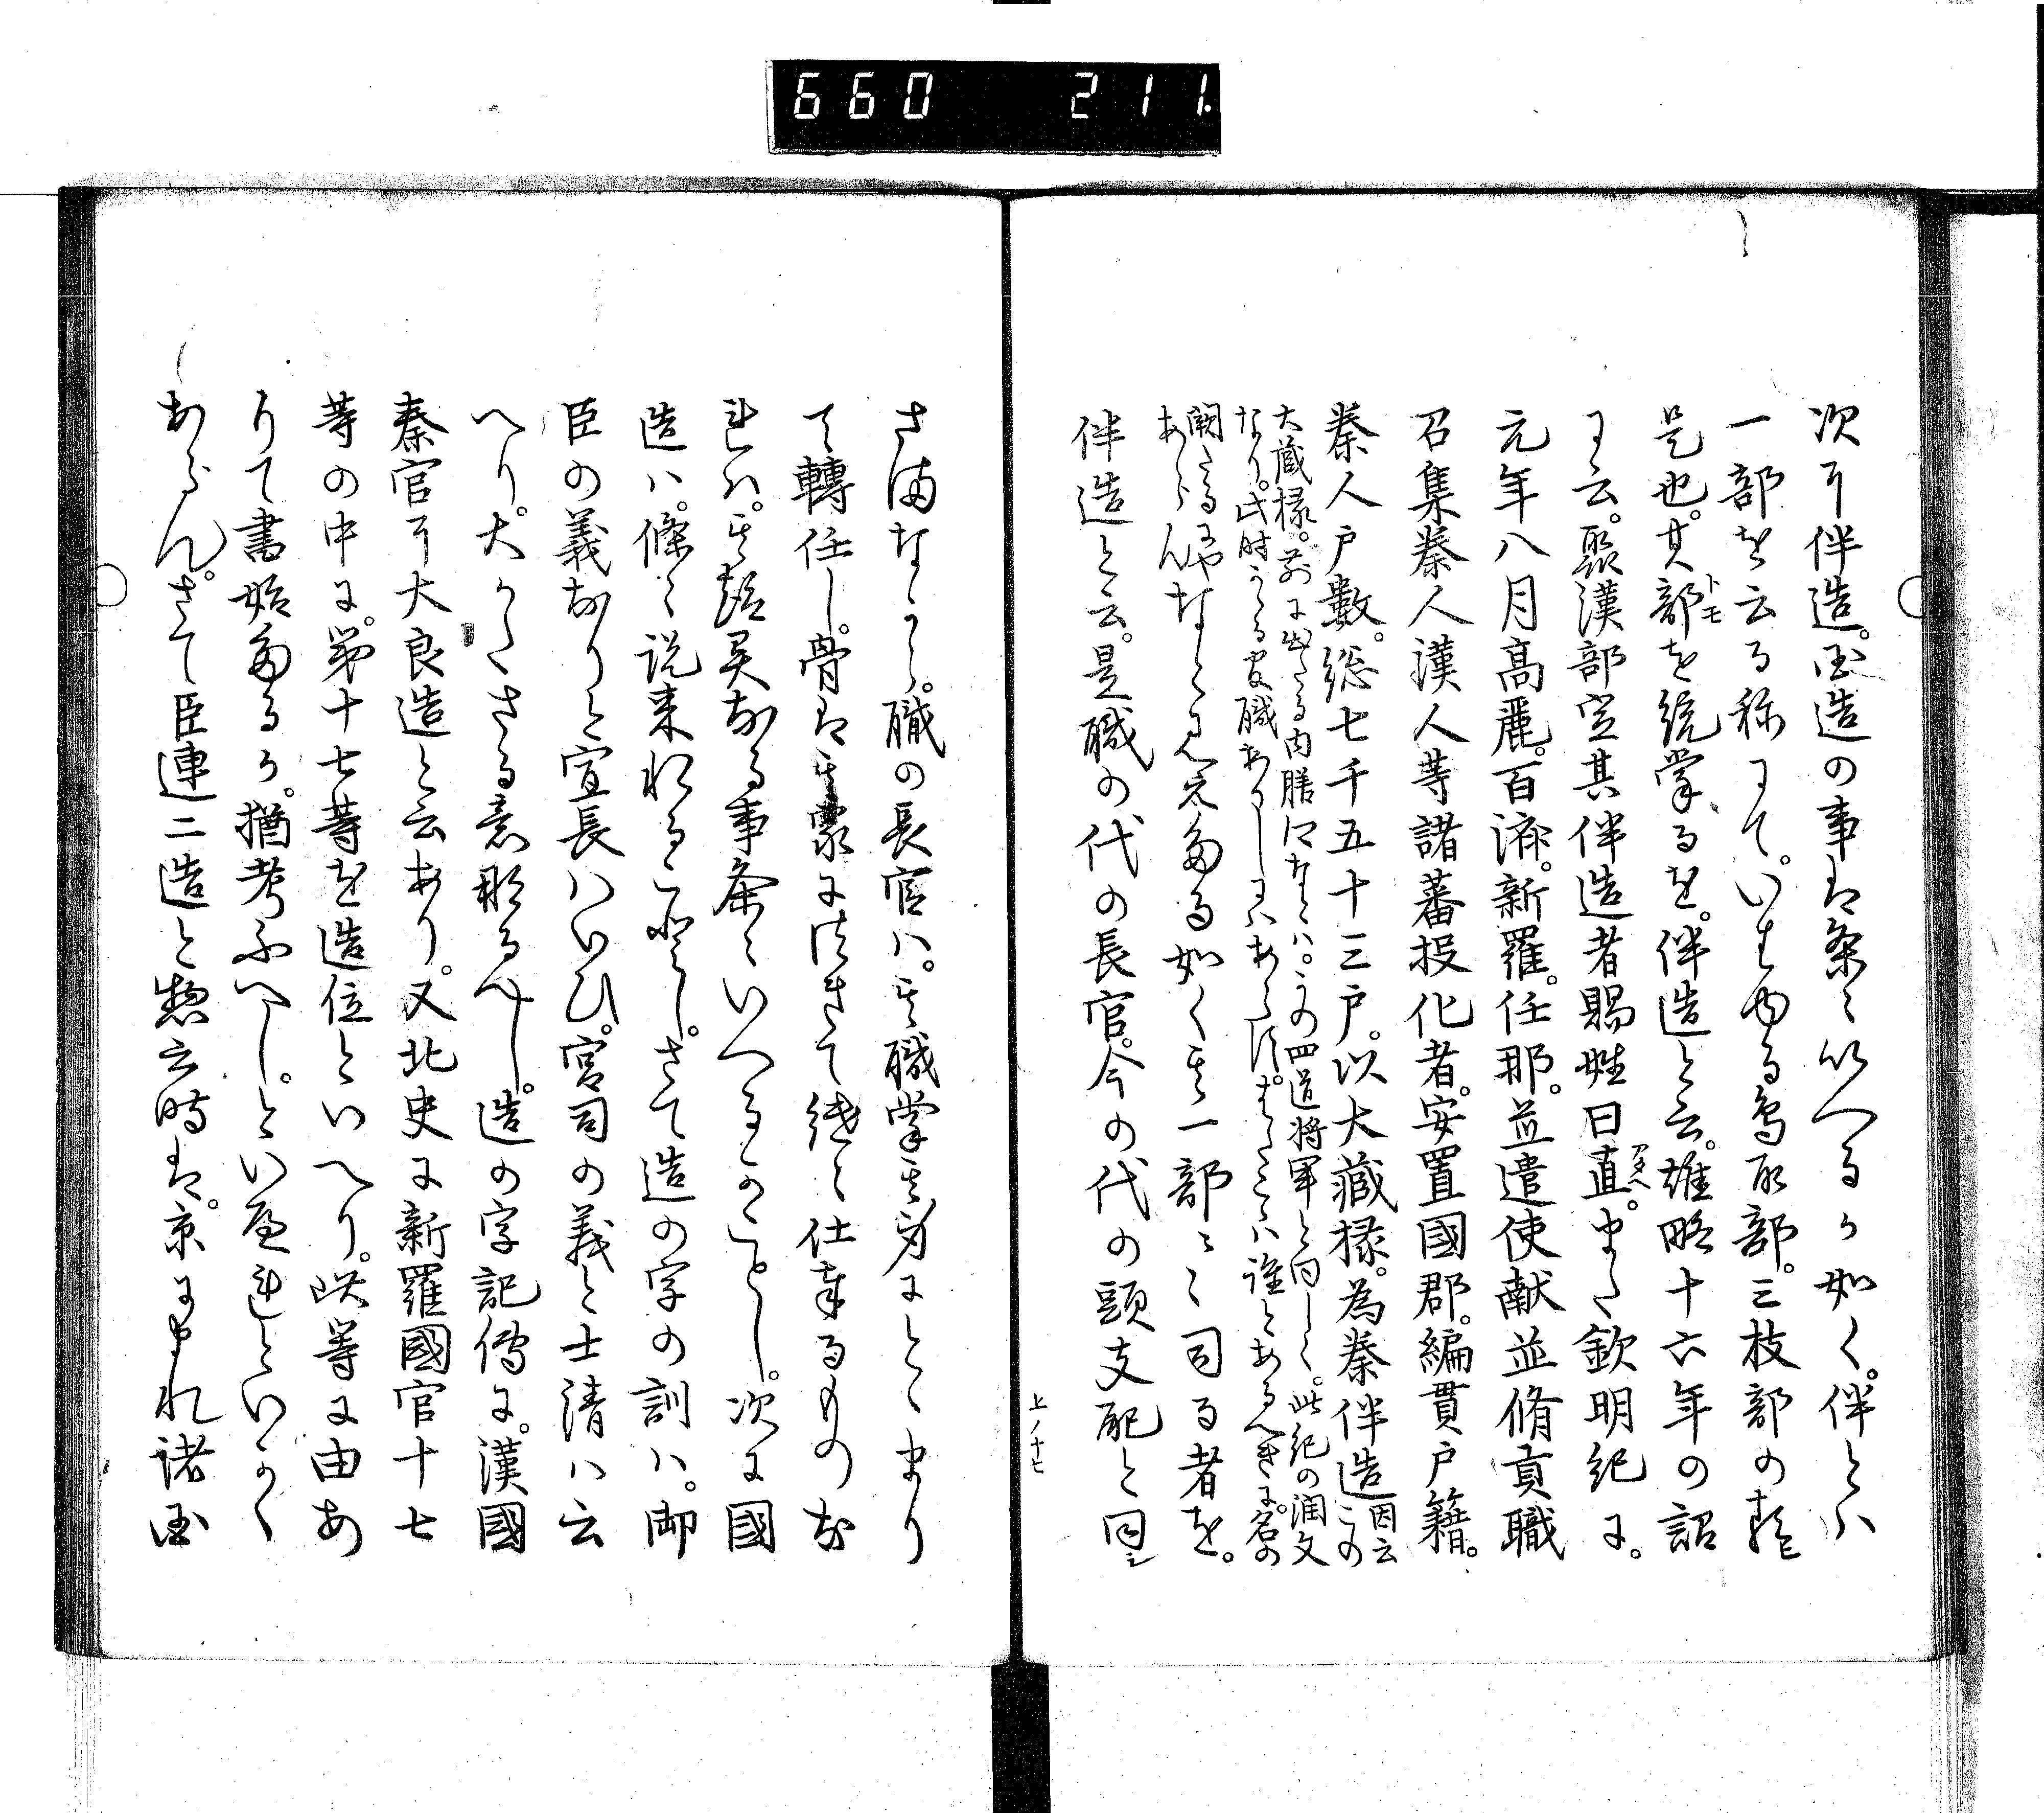 660 211
次に伴造。国造の事は条々いへるか如く。伴とは
一部を云る称にて。いはゆる鳥取部。三枝部の類
是也。其部トモを統掌るを。伴造と云。雄略十六年の詔
に云。聚漢部定其伴造者賜姓曰直アタヘ。また欽明紀に。
元年八月高麗。百済。新羅。任那。並遣使献並脩貢職
召集秦人漢人等諸蕃投化者。安置國郡。編貫戸籍。
秦人戸數。総七千五十三戸。以大藏掾。為秦伴造因云この
大藏掾。前に出たる内膳卿なとは。かの四道将軍と同しく。此紀の潤文
なり。此時かゝる官職ありしにはあらす。またこは誰とあるへきに。名の
闕たるにや
あらんなと見えたる如く其一部々々司る者を。
伴造と云。是職の代の長官。今の代の頭支配と同し
上ノ十七
さまなから。職の長官は。其職掌其身にとゝまり
て轉任し。骨は其家に附きて継々仕奉るものな
れは。其趣異なる事条々いへるかことし。次に國
造は。條々説来れることし。さて造の字の訓は。御
臣の義なりと宣長はいひ。宮司の義と士清は云
へり。大かたさる意なるへし。造の字記傳に。漢國
秦官に大良造と云あり。又北史に新羅國官十七
等の中に。第十七等を造位といへり。此等に由あ
りて書始たるか。猶考ふへし。といはれしいかゝ
あらん。さて臣連二造と惣云時は。京にまれ諸国